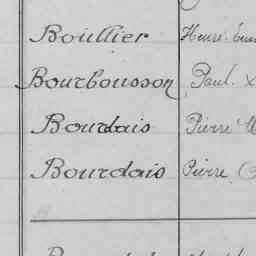 Boullier Henri
Bourbousson Paul
Bourdais Pierre
Bourdais Pierre